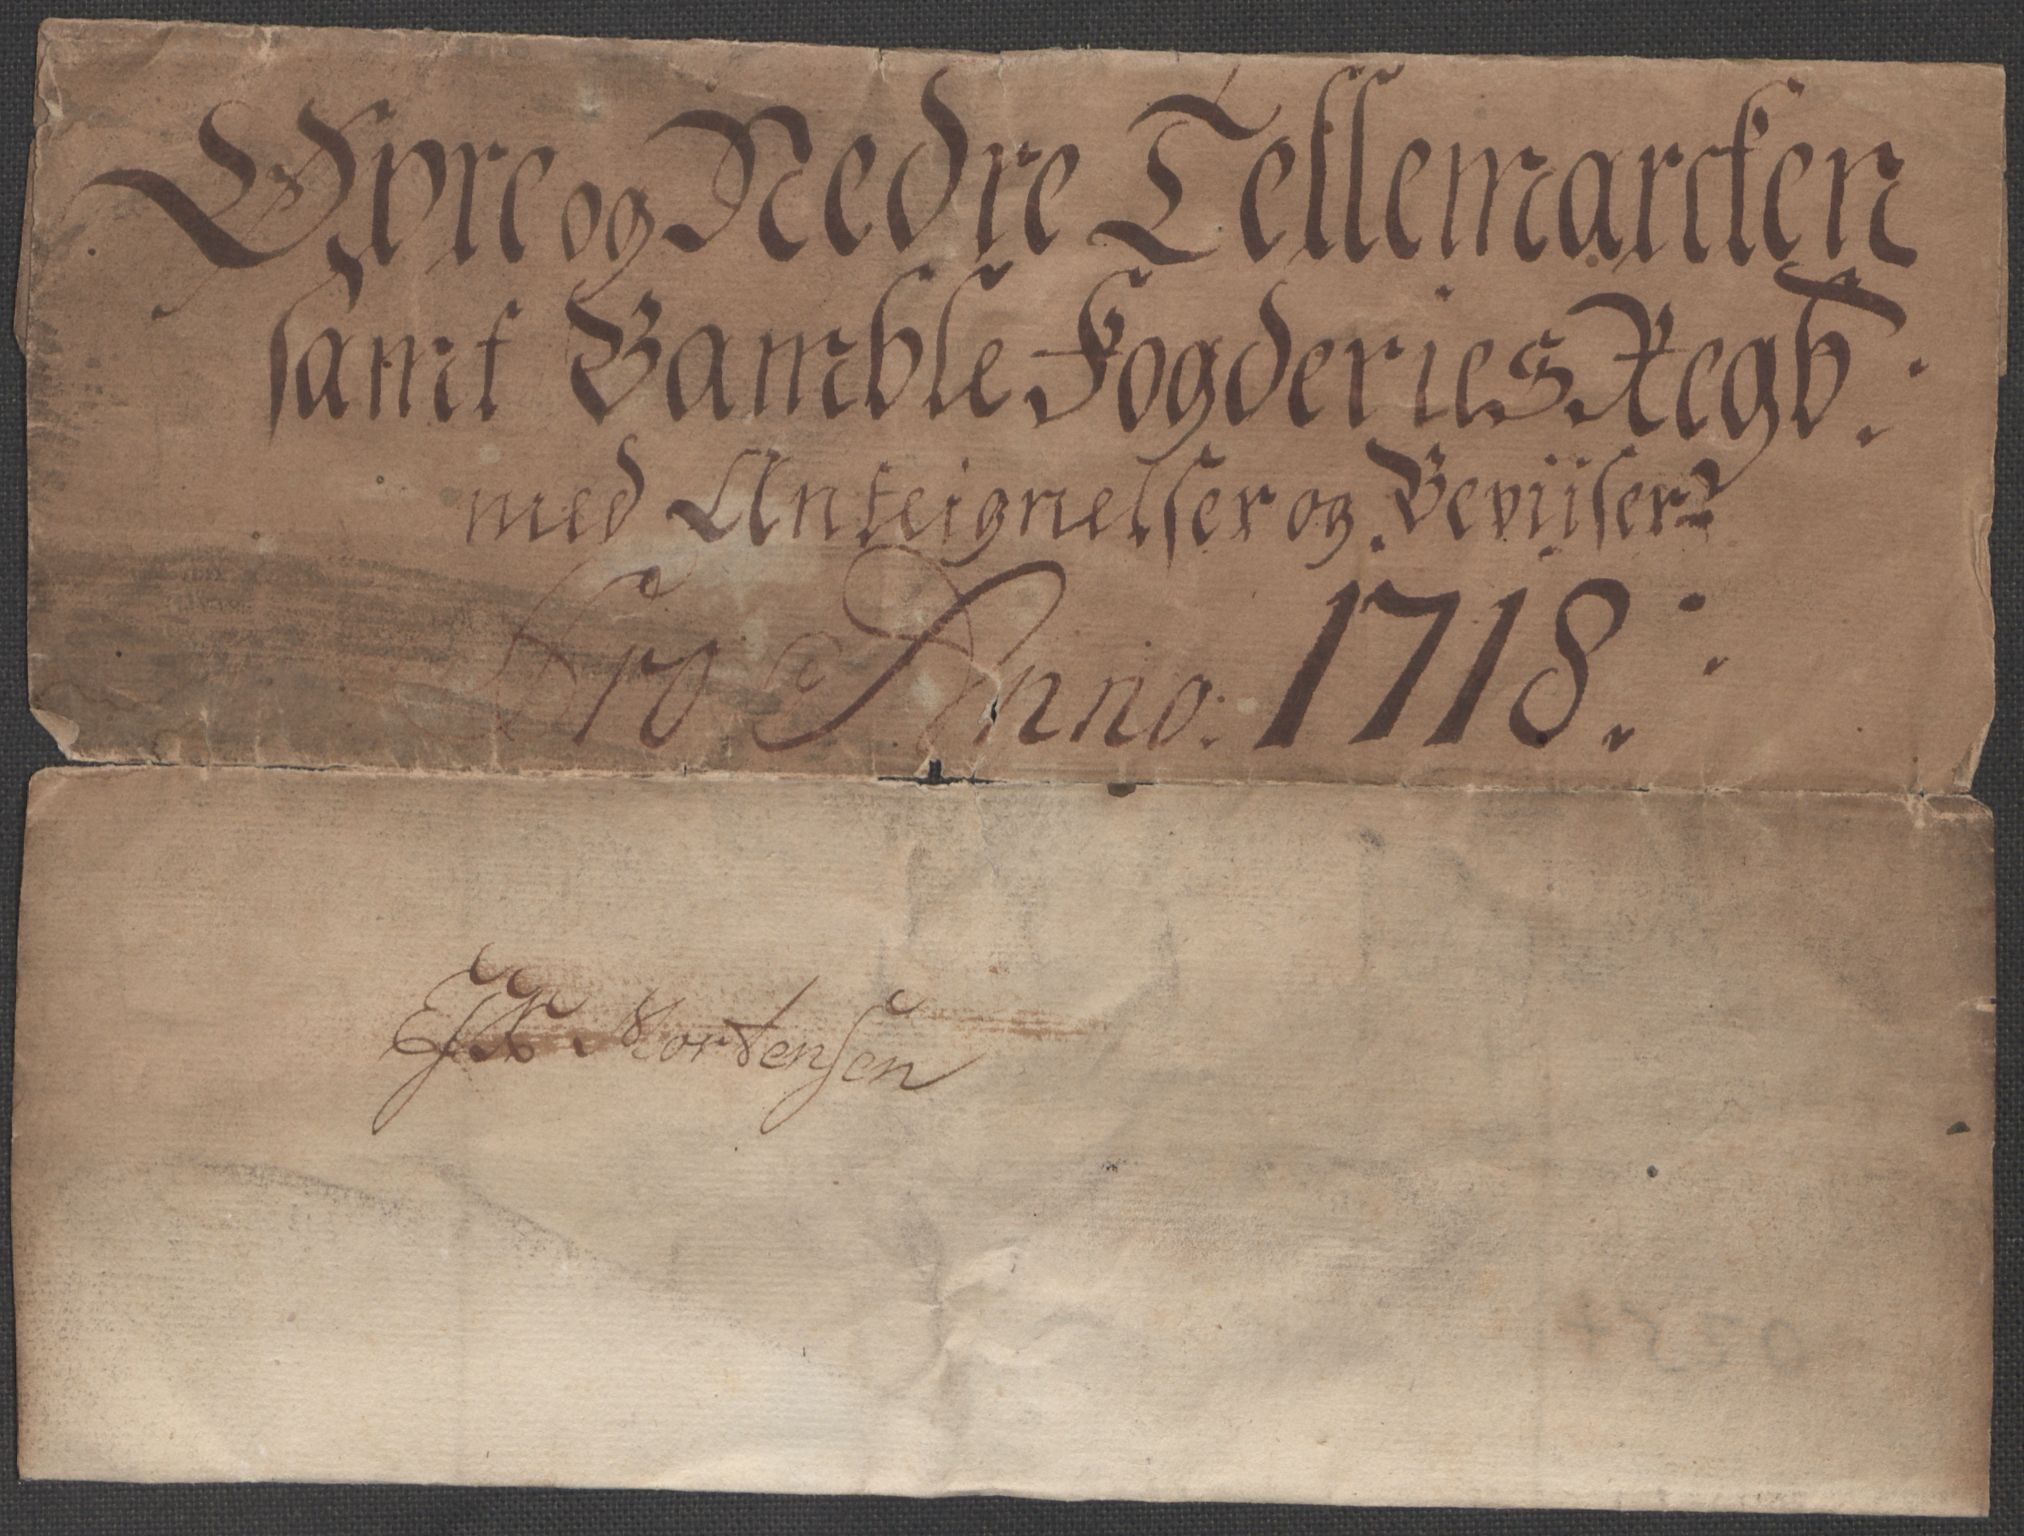 Øvre og Nedre Tellemarcken
samt Bamble Fogderies Regb.
med Anteignelser og Beviiser
Pro Anno: 1718.
Mortensen